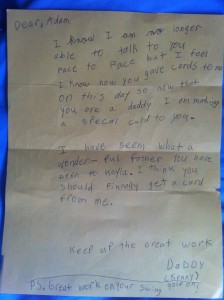 Dear, Adam
I know I am no longer
able to talk to you
face to face but I feel
I know how you gave cards to me
on this day so now that
you are a daddy I am making
a special card to you.
I have seen what a
wonder-ful father you have
been to Kayla. I think you
should finnally get a card
from me.
Keep up the great work
DaDDy
(Senny)
P.S. Great work on your swing
golf on!